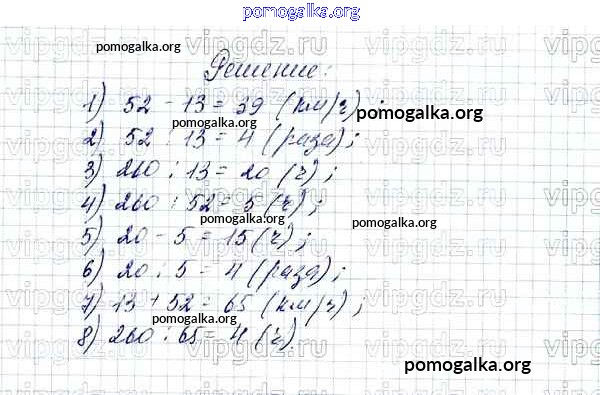 pomogalka.org
Решение:
1) 52 - 13 = 39 (км/ч);
2) 52 : 13 = 4 (раза);
3) 260 : 13 = 20 (ч);
4) 260 : 52 = 5 (ч);
5) 20 - 5 = 15 (ч);
6) 20 : 5 = 4 (раза);
7) 13 + 52 = 65 (км/ч);
8) 260 : 65 = 4 (ч).
pomogalka.org
pomogalka.org
pomogalka.org
pomogalka.org
pomogalka.org
pomogalka.org
pomogalka.org
pomogalka.org
vipgdz.ru
vipgdz.ru
vipgdz.ru